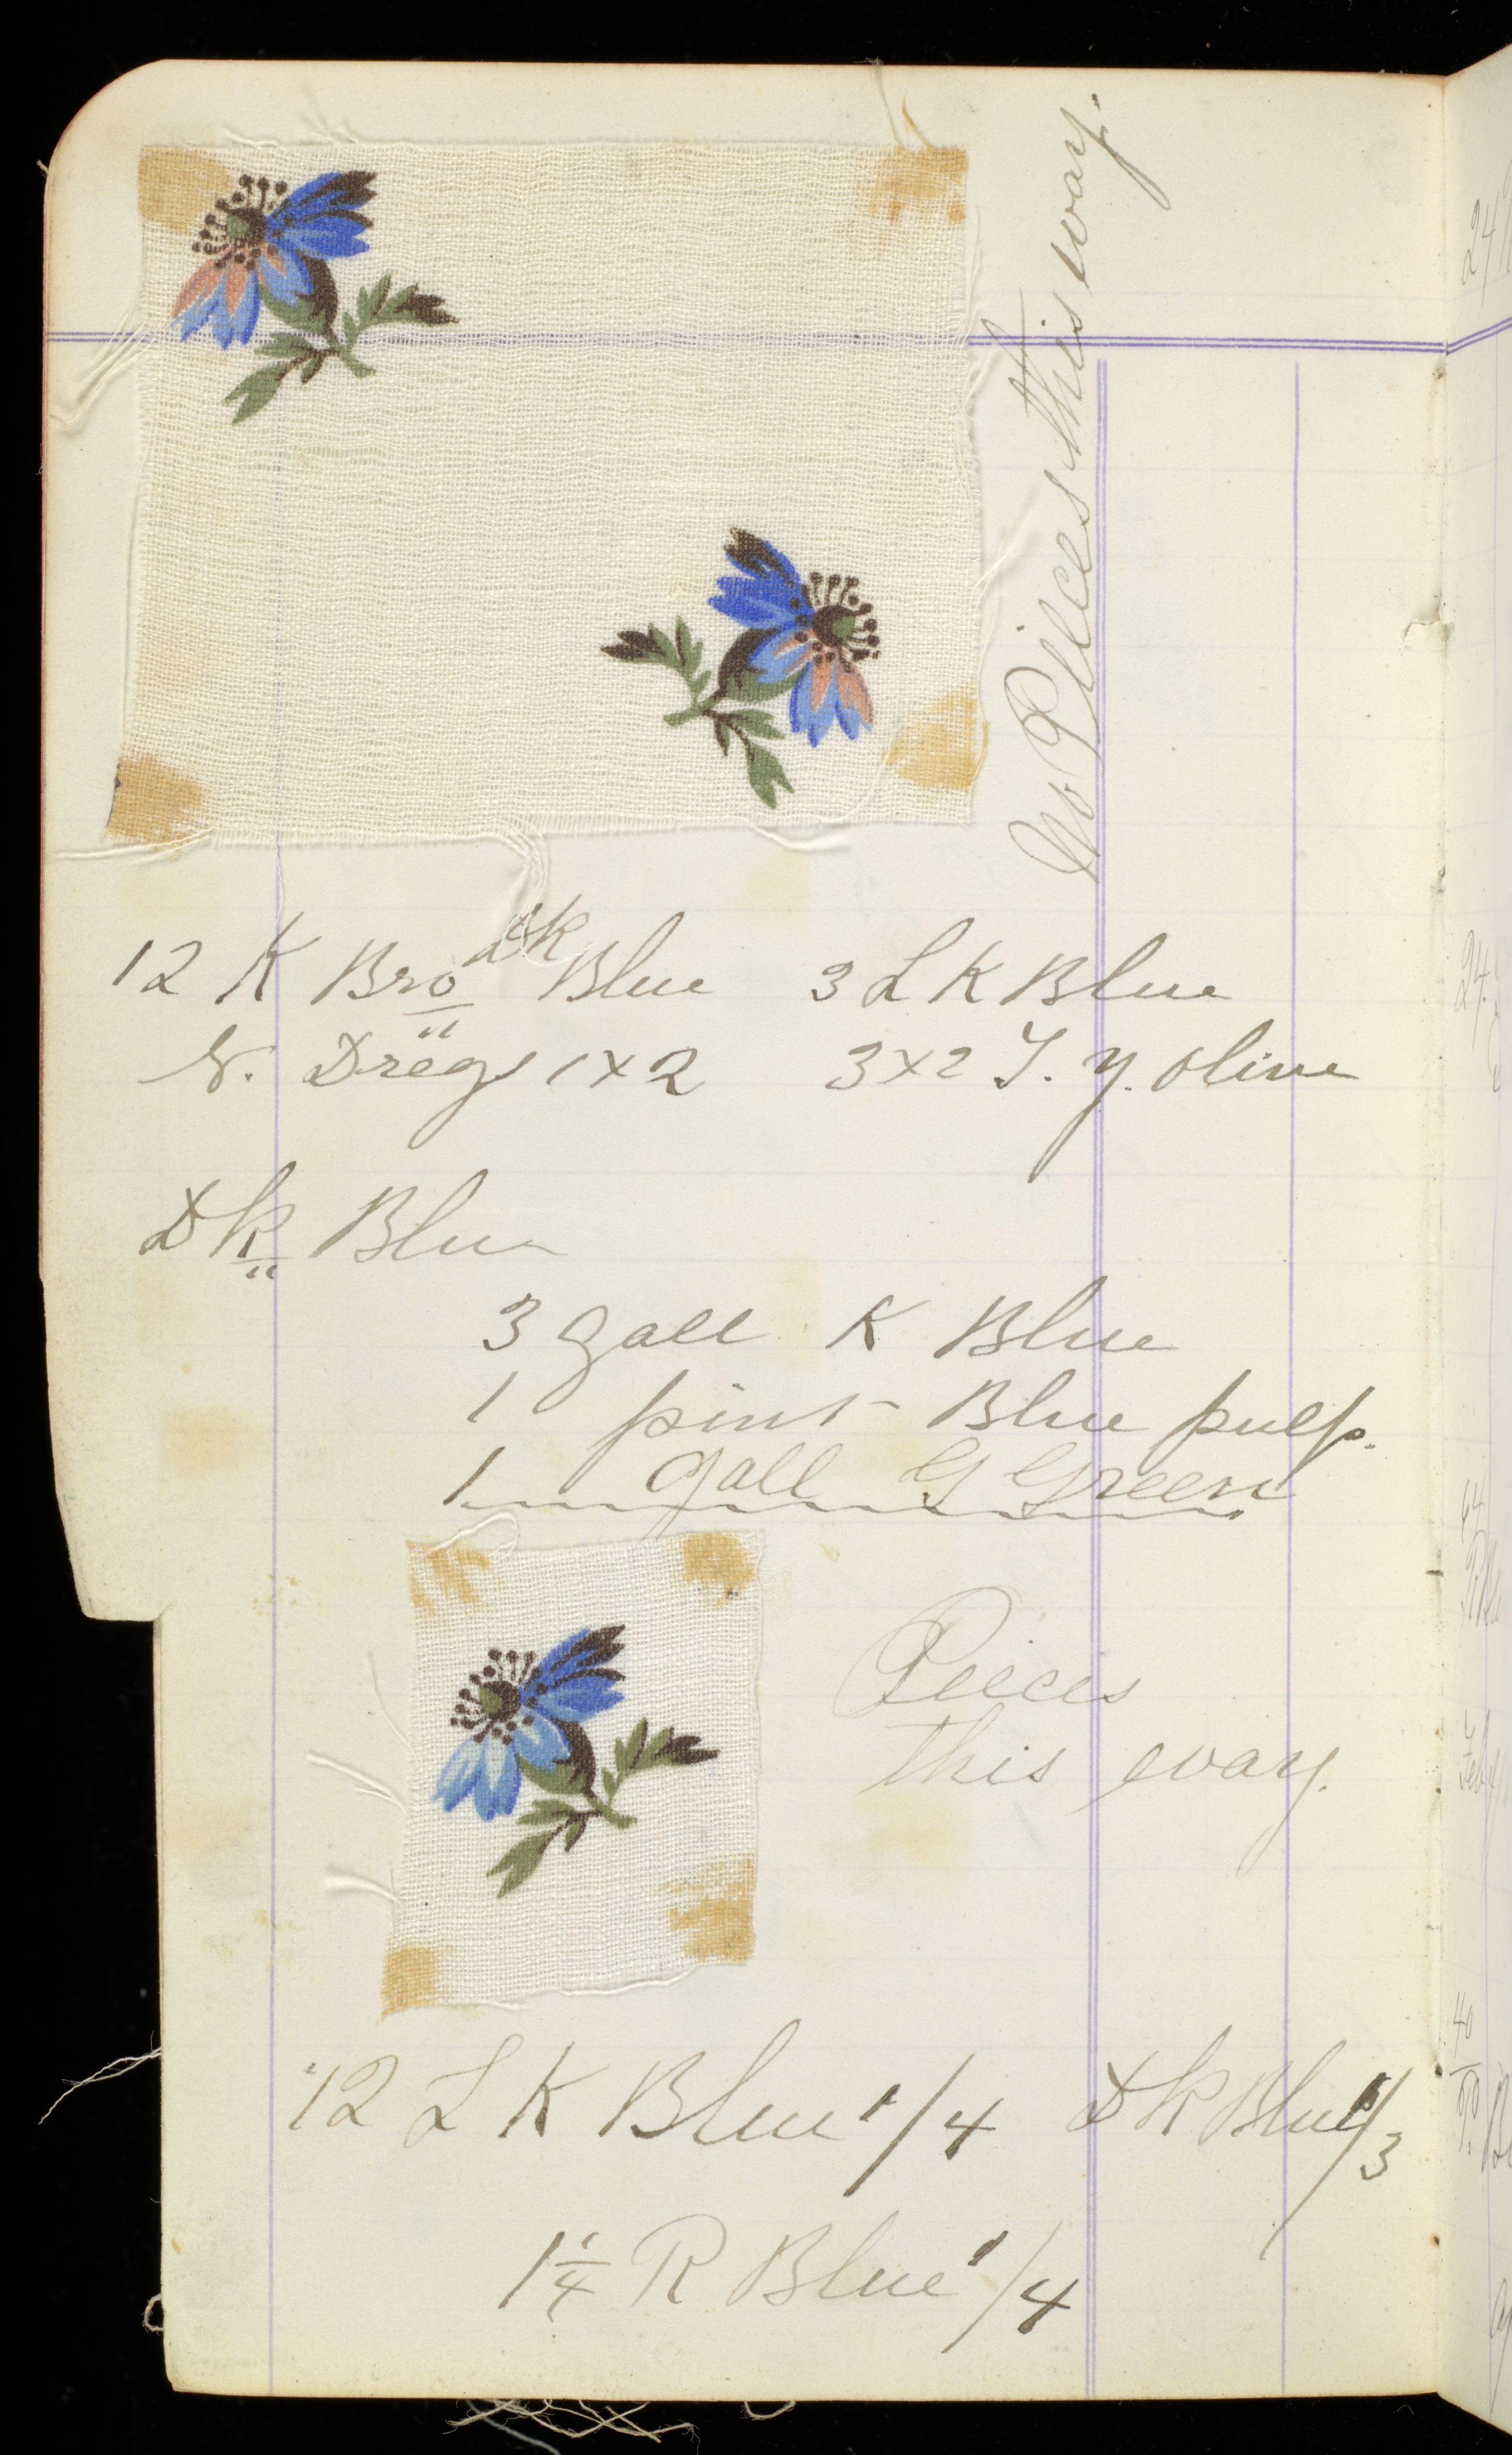 No Pieces this way.
12 K Bro Dk Blue 3 L K Blue
N. Dregs 1x2 3x2 T. y. olive
Dk Blue
3 gall K Blue
1 pint Blue pulp.
1 gall G Green
Pieces
this way.
12 L K Blue 1/4 Dk Blue 1/3
1 1/4 R Blue 1/4